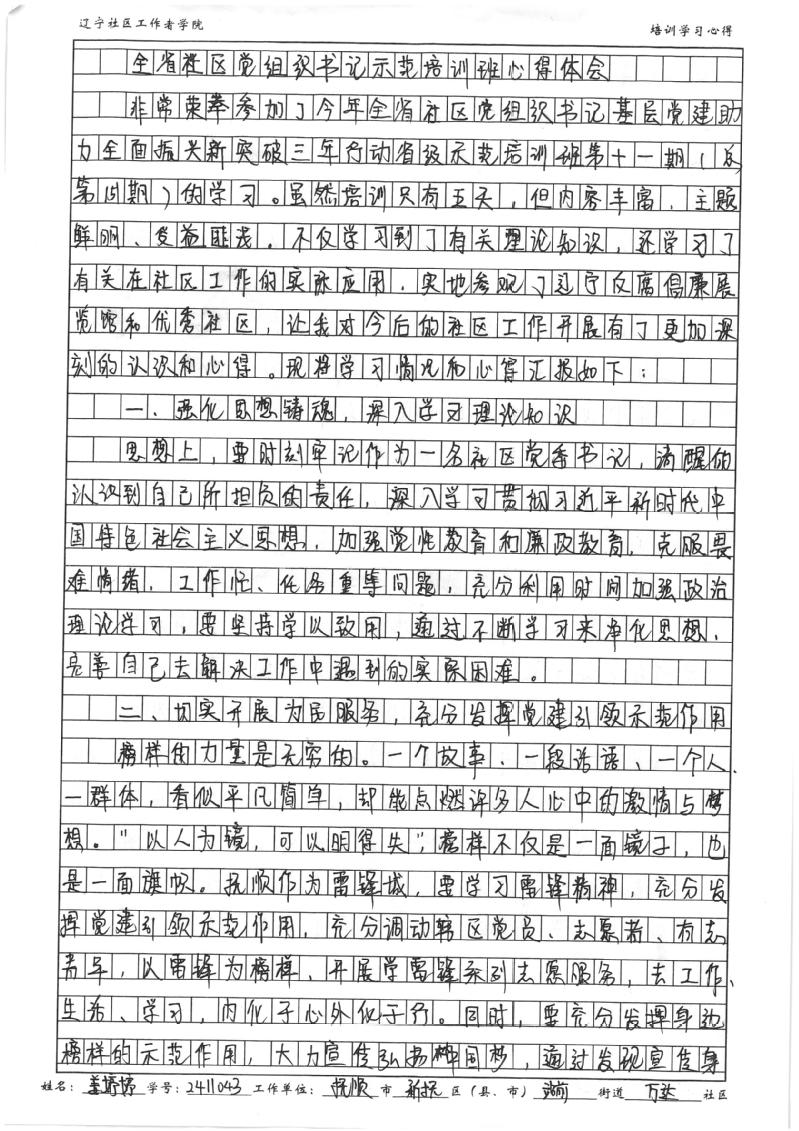 辽宁社区工作者学院
培训学习心得
全省社区党组织书记示范培训班心得体会
非常荣幸参加了今年全省社区党组织书记基层党建助
力全面振兴新突破三年行动省级示范培训班第十一期(总
第 期)的学习。虽然培训只有五天,但内容丰富、主题
鲜明、受益匪浅。不仅学习到了有关理论知识,还学习了
有关在社区工作的实际应用,实地参观了辽宁反腐倡廉展
览馆和优秀社区,让我对今后的社区工作开展有了更加深
刻的认识和心得。现将学习情况和心得汇报如下:
一、强化思想铸魂,深入学习理论知识
思想上,要时刻牢记作为一名社区党委书记,清醒的
认识到自己所担负的责任,深入学习贯彻习近平新时代中
国特色社会主义思想,加强党性教育和廉政教育,克服畏
难情绪、工作忙、任务重等问题,充分利用时间加强政治
理论学习,要坚持学以致用,通过不断学习来净化思想、
完善自己去解决工作中遇到的实际困难。
二、切实开展为民服务,充分发挥党建引领示范作用
榜样的力量是无穷的。一个故事、一段话语、一个人、
一群体,看似平凡简单,却能点燃许多人心中的激情与梦
想。“以人为镜,可以明得失”,榜样不仅是一面镜子,也
是一面旗帜。抚顺作为雷锋城,要学习雷锋精神,充分发
挥党建引领示范作用,充分调动辖区党员、志愿者、有志
青年,以雷锋为榜样、开展学雷锋系列志愿服务,去工作、
生活、学习,内化于心外化于行。同时,要充分发挥身边
榜样的示范作用,大力宣传弘扬中国梦,通过发现宣传身
姓名:姜婷婷 学号:2411043 工作单位:抚顺 市 新抚 区(县、市) 站前 街道 万达 社区